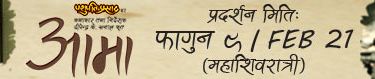 पशुपतिप्रसाद का
कथाकार तथा निर्देशक
दीपेन्द्र के. खनाल कृत
आमा
प्रदर्शन मितिः
फागुन ९ / FEB 21
(महाशिवरात्री)